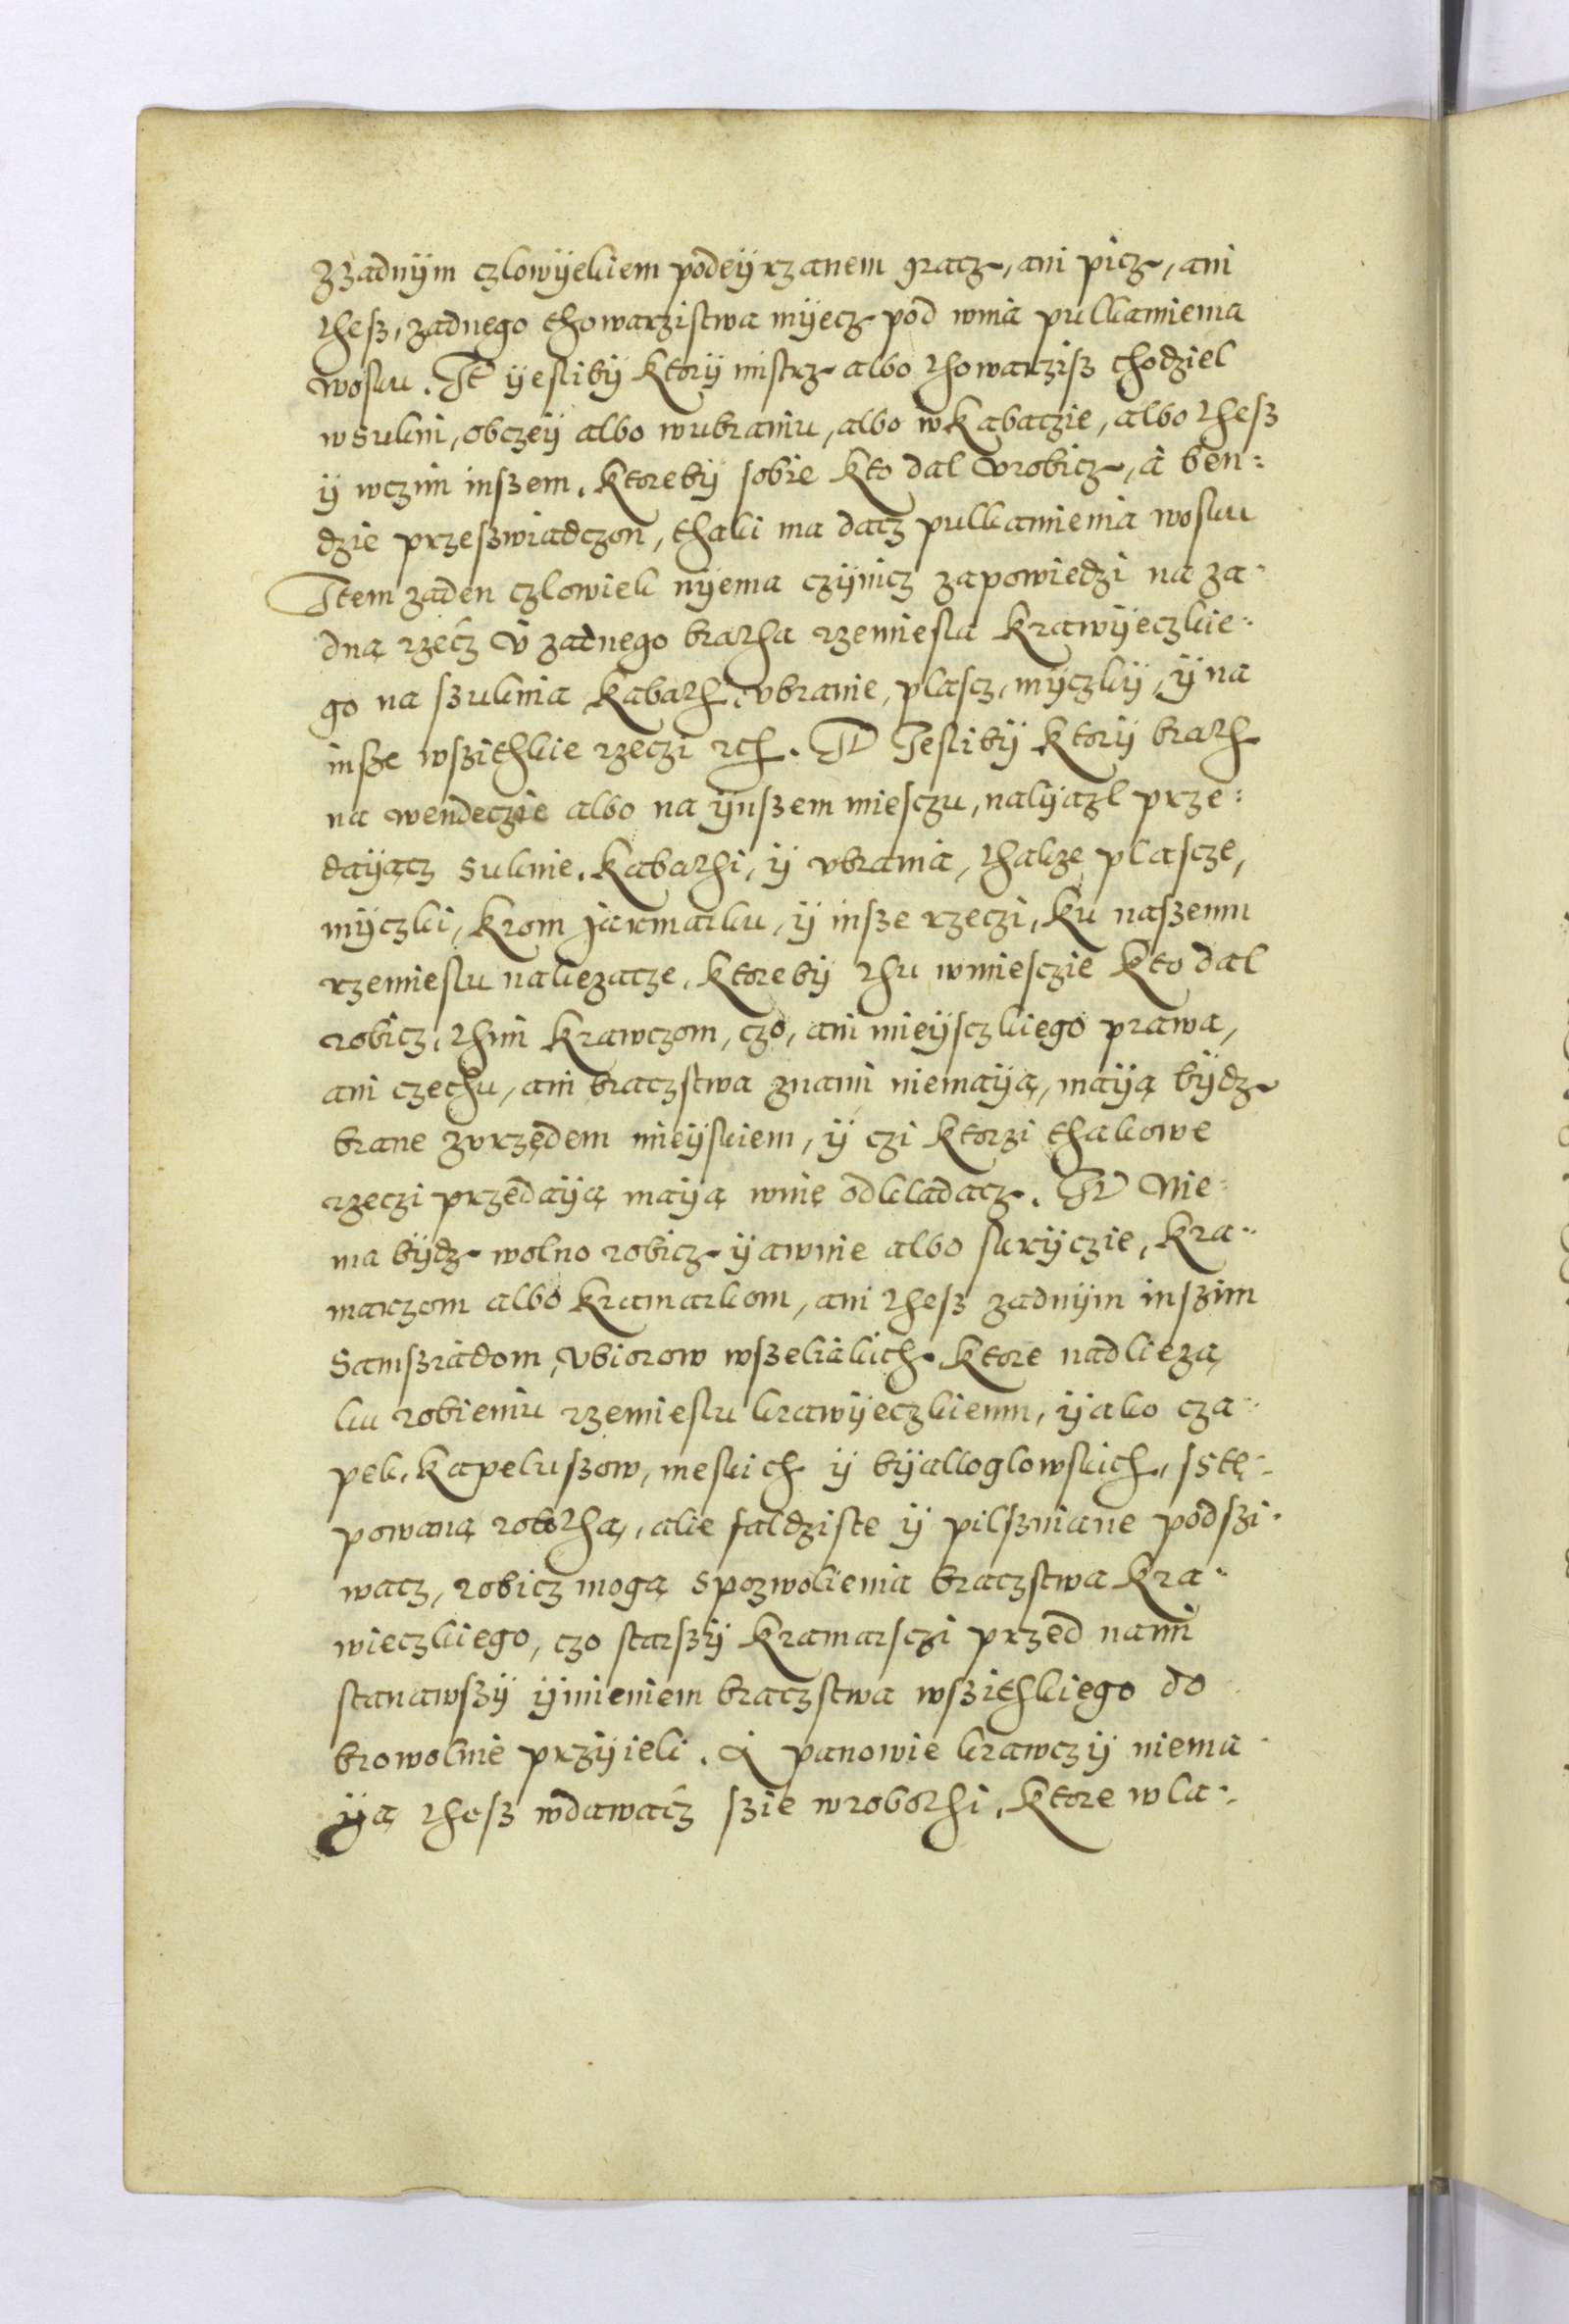 zzadnÿm czlowÿekiem podeÿrzanem gracz, ani picz, ani
thesz, zadnego thowarzistwa mÿecz pod wina pulkamienia
wosku. It ÿesliby ktorÿ mistrz albo thowarzisz chodziel
wsukni, obczeÿ albo wubraniu, albo wkabaczie, albo thesz
ÿ wczim inszem, ktorebÿ sobie kto dal vrobicz, a ben=
dzie przeszwiadczon, thaki ma dacz pulkamienia wosku
Item zaden czlowiek nÿema czÿnicz zapowiedzi na za=
dną rzecz v zadnego bratha rzemiesla krawÿeczkie=
go na szuknia kabath, vbranie, plascz, mÿczkÿ, ÿ na
insze wszithkie rzeczi etc. It Jeslibÿ ktorÿ brath
na wendeczie albo na ÿnszem miesczu, nalÿazl prze=
daÿącz suknie, kabathi, ÿ vbrania, thakze plascze,
mÿczki, krom jarmarku, ÿ insze rzeczi, ku naszemu
rzemieslu nalezacze, ktorebÿ thu wmiesczie kto dal
robicz, thim krawczom, czo, ani mieÿsczkiego prawa,
ani czechu, ani braczstwa znami niemaÿą, maÿą bÿdz
brane zvrzędem mieÿskiem, ÿ czi ktorzi thakowe
rzeczi przedaÿą maÿą winę odkladacz. It Nie=
ma bÿdz wolno robicz ÿawnie albo skrÿczie, kra=
marzom albo kramarkom, ani thesz zadnÿm inszim
Samsziadom, vbiorow wszeliakich ktore nadlieza
ku robieniu rzemieslu krawÿeczkiemu, ÿako cza=
pek, kapeluszow, meskich ÿ bÿalloglowskich, sstę=
powaną robothą, alie faldziste ÿ pilszniane podszi=
wacz, robicz mogą spozwolienia braczstwa kra=
wieczkiego, czo starszÿ kramarsczi przed nami
stanawszÿ ÿmieniem braczstwa wszithkiego do
browolnie przÿieli. A panowie krawczÿ niema=
ÿą thesz wdawacz szie wrobothi, ktore wla=